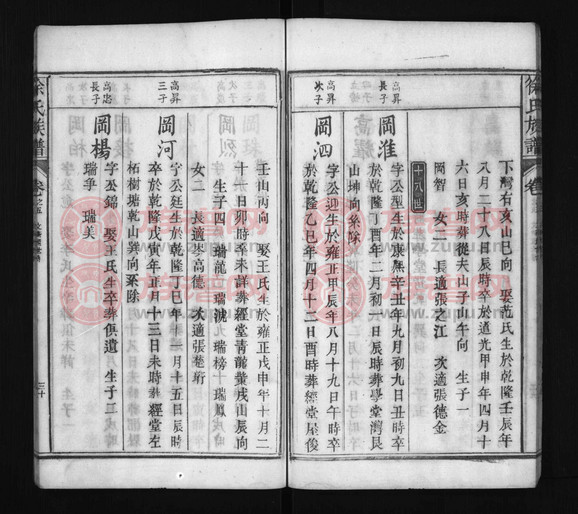 徐氏族譜
下灣右亥山巳向 娶范氏生於乾隆壬辰年
八月二十八日辰時卒於道光甲申年四月十
六日亥時葬從夫山子山午向 生子一
岡智 女二 長適張之江 次適張德金
十八世
高昇長子
岡淮
字公型生於康熙辛丑年九月初九日丑時卒
於乾隆丁酉年二月初一日辰時葬學堂灣艮
山坤向糸除
高昇次子
岡泗
字公迎生於雍正甲辰年八月十九日午時卒
於乾隆乙巳年四月十二日酉時葬經堂屋後
壬山丙向 娶王氏生於雍正戊申年十月二
十六日卯時卒未詳葬經堂青龍 戌山辰向
生子四 瑞 瑞 瑞榜 瑞鳳
女二 長適李高德 次適張楚珩
高昇三子
岡河
字公廷生於乾隆丁巳年十一月十五日辰時
卒於乾隆戊寅年正月十三日未時葬經堂左
柘樹塘乾山巽向糸除
高忠長子
岡楊
字公錦 娶王氏生卒葬俱遺 生子二
瑞爭 瑞美
徐氏族譜
三十